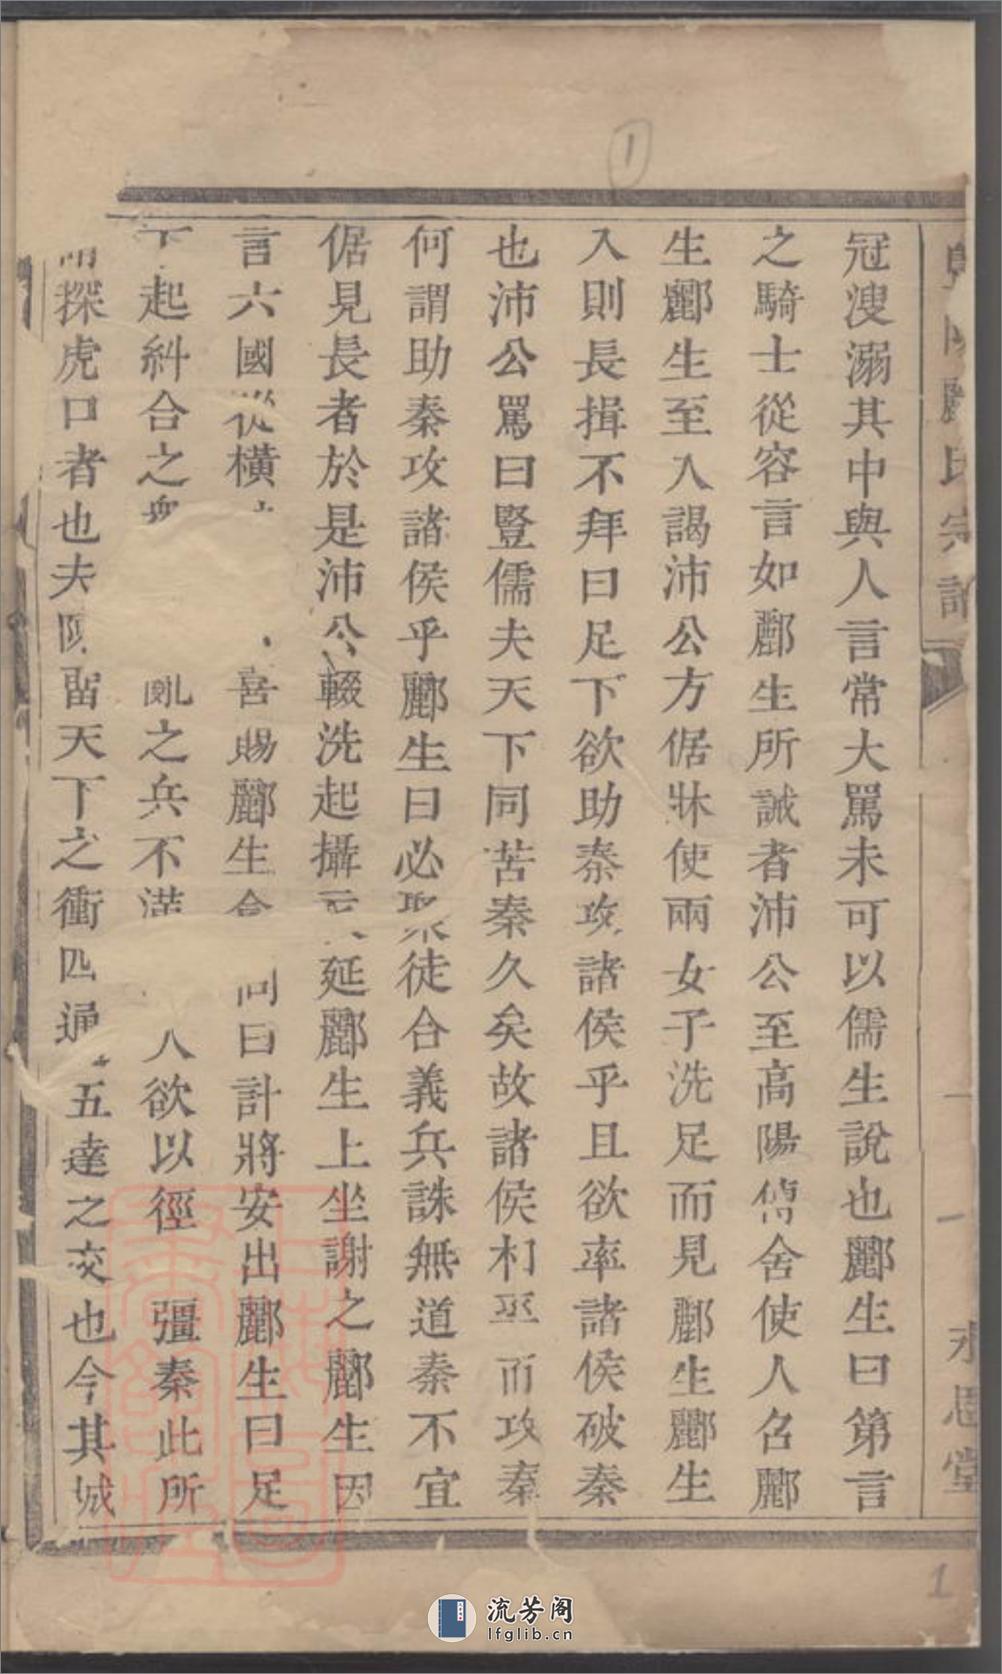 氏宗譜 一 永思堂
冠溲溺其中與人言常大罵未可以儒生說也酈生曰第言
之騎士從容言如酈生所誡者沛公至高陽傳舍使人召酈
生酈生至入謁沛公方倨牀使兩女子洗足而見酈生酈生
入則長揖不拜曰足下欲助秦攻諸侯乎且欲率諸侯破秦
也沛公罵曰豎儒夫天下同苦秦久矣故諸侯相率而攻秦
何謂助秦攻諸侯乎酈生曰必聚徒合義兵誅無道秦不宜
倨見長者於是沛公輟洗起攝衣延酈生上坐謝之酈生因
言六國從橫喜賜酈生食問曰計將安出酈生曰足
下起糾合之亂之兵不滿人欲以徑彊秦此所
謂探虎口者也夫陳留天下之衝四通五達之交也今其城
1
1
流芳阁
lfglib.cn